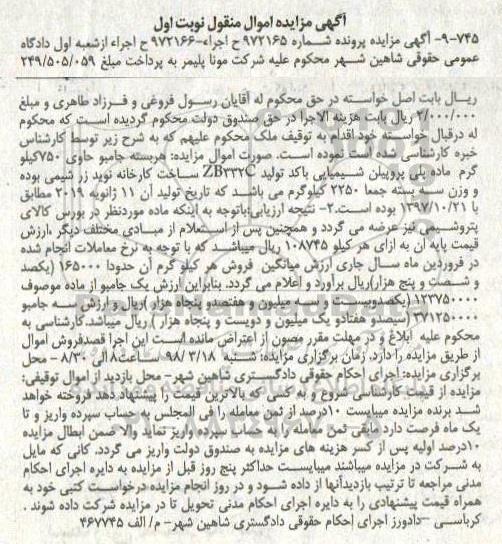 آگهی مزایده اموال منقول نوبت اول
۷۴۵-۹- آگهی مزایده پرونده شماره ۹۷۲۱۶۵ ح اجراء-۹۷۲۱۶۶ ح اجراء ازشعبه اول دادگاه
عمومی حقوقی شاهین شهر محکوم علیه شرکت مونا پلیمر به پرداخت مبلغ ۲۴۹/۵۰۵/۰۵۹
ریال بابت اصل خواسته در حق محکوم له آقایان رسول فروغی و فرزاد طاهری و مبلغ
۲/۰۰۰/۰۰۰ ریال بابت هزینه الاجرا در حق صندوق دولت محکوم گردیده است که محکوم
له درقبال خواسته خود اقدام به توقیف ملک محکوم علیهم که به شرح زیر توسط کارشناس
خبره کارشناسی شده است نموده است. صورت اموال مزایده: هربسته جامبو حاوی ۷۵۰کیلو
گرم ماده پلی پروپیلن شیمیایی باکد تولید ZB۳۳۲C ساخت کارخانه نوید زر شیمی بوده
و وزن سه بسته جمعا ۲۲۵۰ کیلوگرم می باشد که تاریخ تولید آن ۱۱ ژانویه ۲۰۱۹ مطابق
با ۱۳۹۷/۱۰/۲۱ بوده است.۲- نتیجه ارزیابی:باتوجه به اینکه ماده موردنظر در بورس کالای
پتروشیمی نیز عرضه می گردد و همچنین پس از استعلام از مبادی مختلف دیگر ،ارزش
قیمت پایه آن به ازای هر کیلو ۱۰۸۷۴۵ ریال میباشد که با توجه به نرخ معاملات انجام شده
در فروردین ماه سال جاری ارزش میانگین فروش هر کیلو گرم آن حدودا ۱۶۵۰۰۰ (یکصد
و شصت و پنج هزار)ریال برآورد و اعلام می گردد. بنابراین ارزش یک جامبو از ماده موصوف
۱۲۳۷۵۰۰۰۰ (یکصدوبیست و سه میلیون و هفتصدو پنجاه هزار )ریال و ارزش سه جامبو
۳۷۱۲۵۰۰۰۰ (سیصدو هفتادو یک میلیون و دویست و پنجاه هزار ) ریال میباشد.کارشناسی به
محکوم علیه ابلاغ و در مهلت مقرر مصون از اعتراض مانده است این اجرا قصدفروش اموال
از طریق مزایده را دارد. زمان برگزاری مزایده: شنبه ۹۸/۳/۱۸ ساعت۸ الی ۸/۳۰ - محل
برگزاری مزایده: اجرای احکام حقوقی دادگستری شاهین شهر- محل بازدید اموال توقیفی:
مزایده از قیمت کارشناسی شروع و به کسی که بالاترین قیمت را پیشنهاد دهد فروخته خواهد
شد برنده مزایده میبایست ۱۰درصد از ثمن معامله را فی المجلس به حساب سپرده واریز و تا
یک ماه فرصت دارد مابقی ثمن معامله را به حساب سپرده واریز نماید والا ضمن ابطال مزایده
۱۰درصد اولیه پس از کسر هزینه های مزایده به صندوق دولت واریز می گردد. کانی که مایل
به شرکت در مزایده میباشند میبایست حداکثر پنج روز قبل از مزایده به دایره اجرای احکام
مدنی مراجعه تا ترتیب بازدیدآنها از داده شود و در روز انجام مزایده درخواست کتبی خود به
همراه قیمت پیشنهادی را به دایره اجرای احکام مدنی تحویل تا در مزایده شرکت داده شوند .
کرباسی -دادورز اجرای احکام حقوقی دادگستری شاهین شهر- م/ الف ۴۶۷۷۴۵